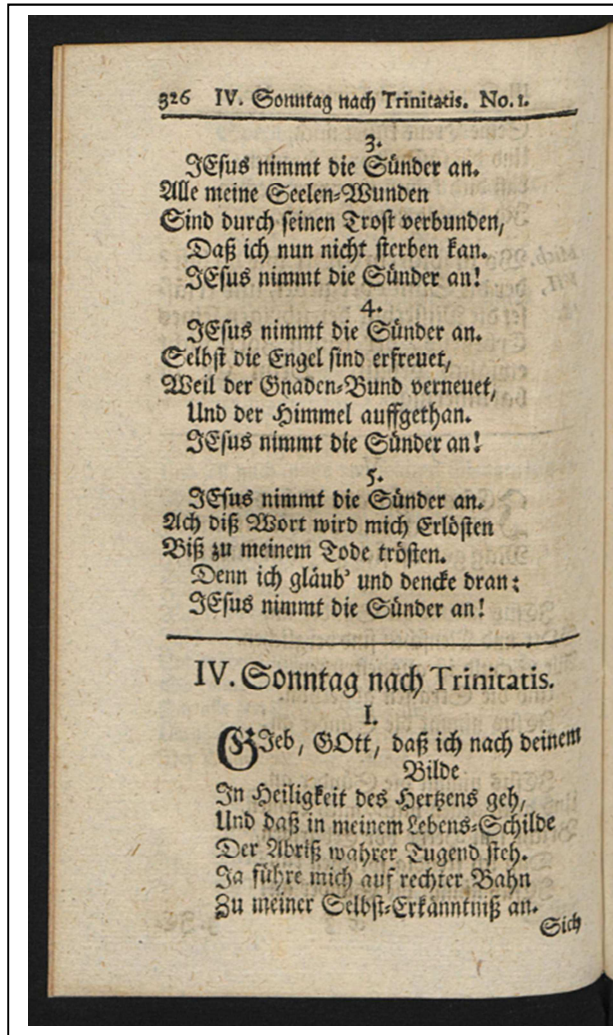 326 IV. Sonntag nach Trinitatis. No. 1.
3.
JEsus nimmt die Sünder an.
Alle meine Seelen-Wunden
Sind durch seinen Trost verbunden,
Daß ich nun nicht sterben kan.
JEsus nimmt die Sünder an!
4.
JEsus nimmt die Sünder an.
Selbst die Engel sind erfreuet,
Weil der Gnaden-Bund verneuet,
Und der Himmel auffgethan.
JEsus nimmt die Sünder an!
5.
JEsus nimmt die Sünder an.
Ach diß Wort wird mich Erlösten
Biß zu meinem Tode trösten.
Denn ich gläub' und dencke dran:
JEsus nimmt die Sünder an!
IV. Sonntag nach Trinitatis.
I.
GJeb, GOtt, daß ich nach deinem
Bilde
In Heiligkeit des Hertzens geh,
Und daß in meinem Lebens-Schilde
Der Abriß wahrer Tugend steh.
Ja führe mich auf rechter Bahn
Zu meiner Selbst-Erkänntniß an.
Sich